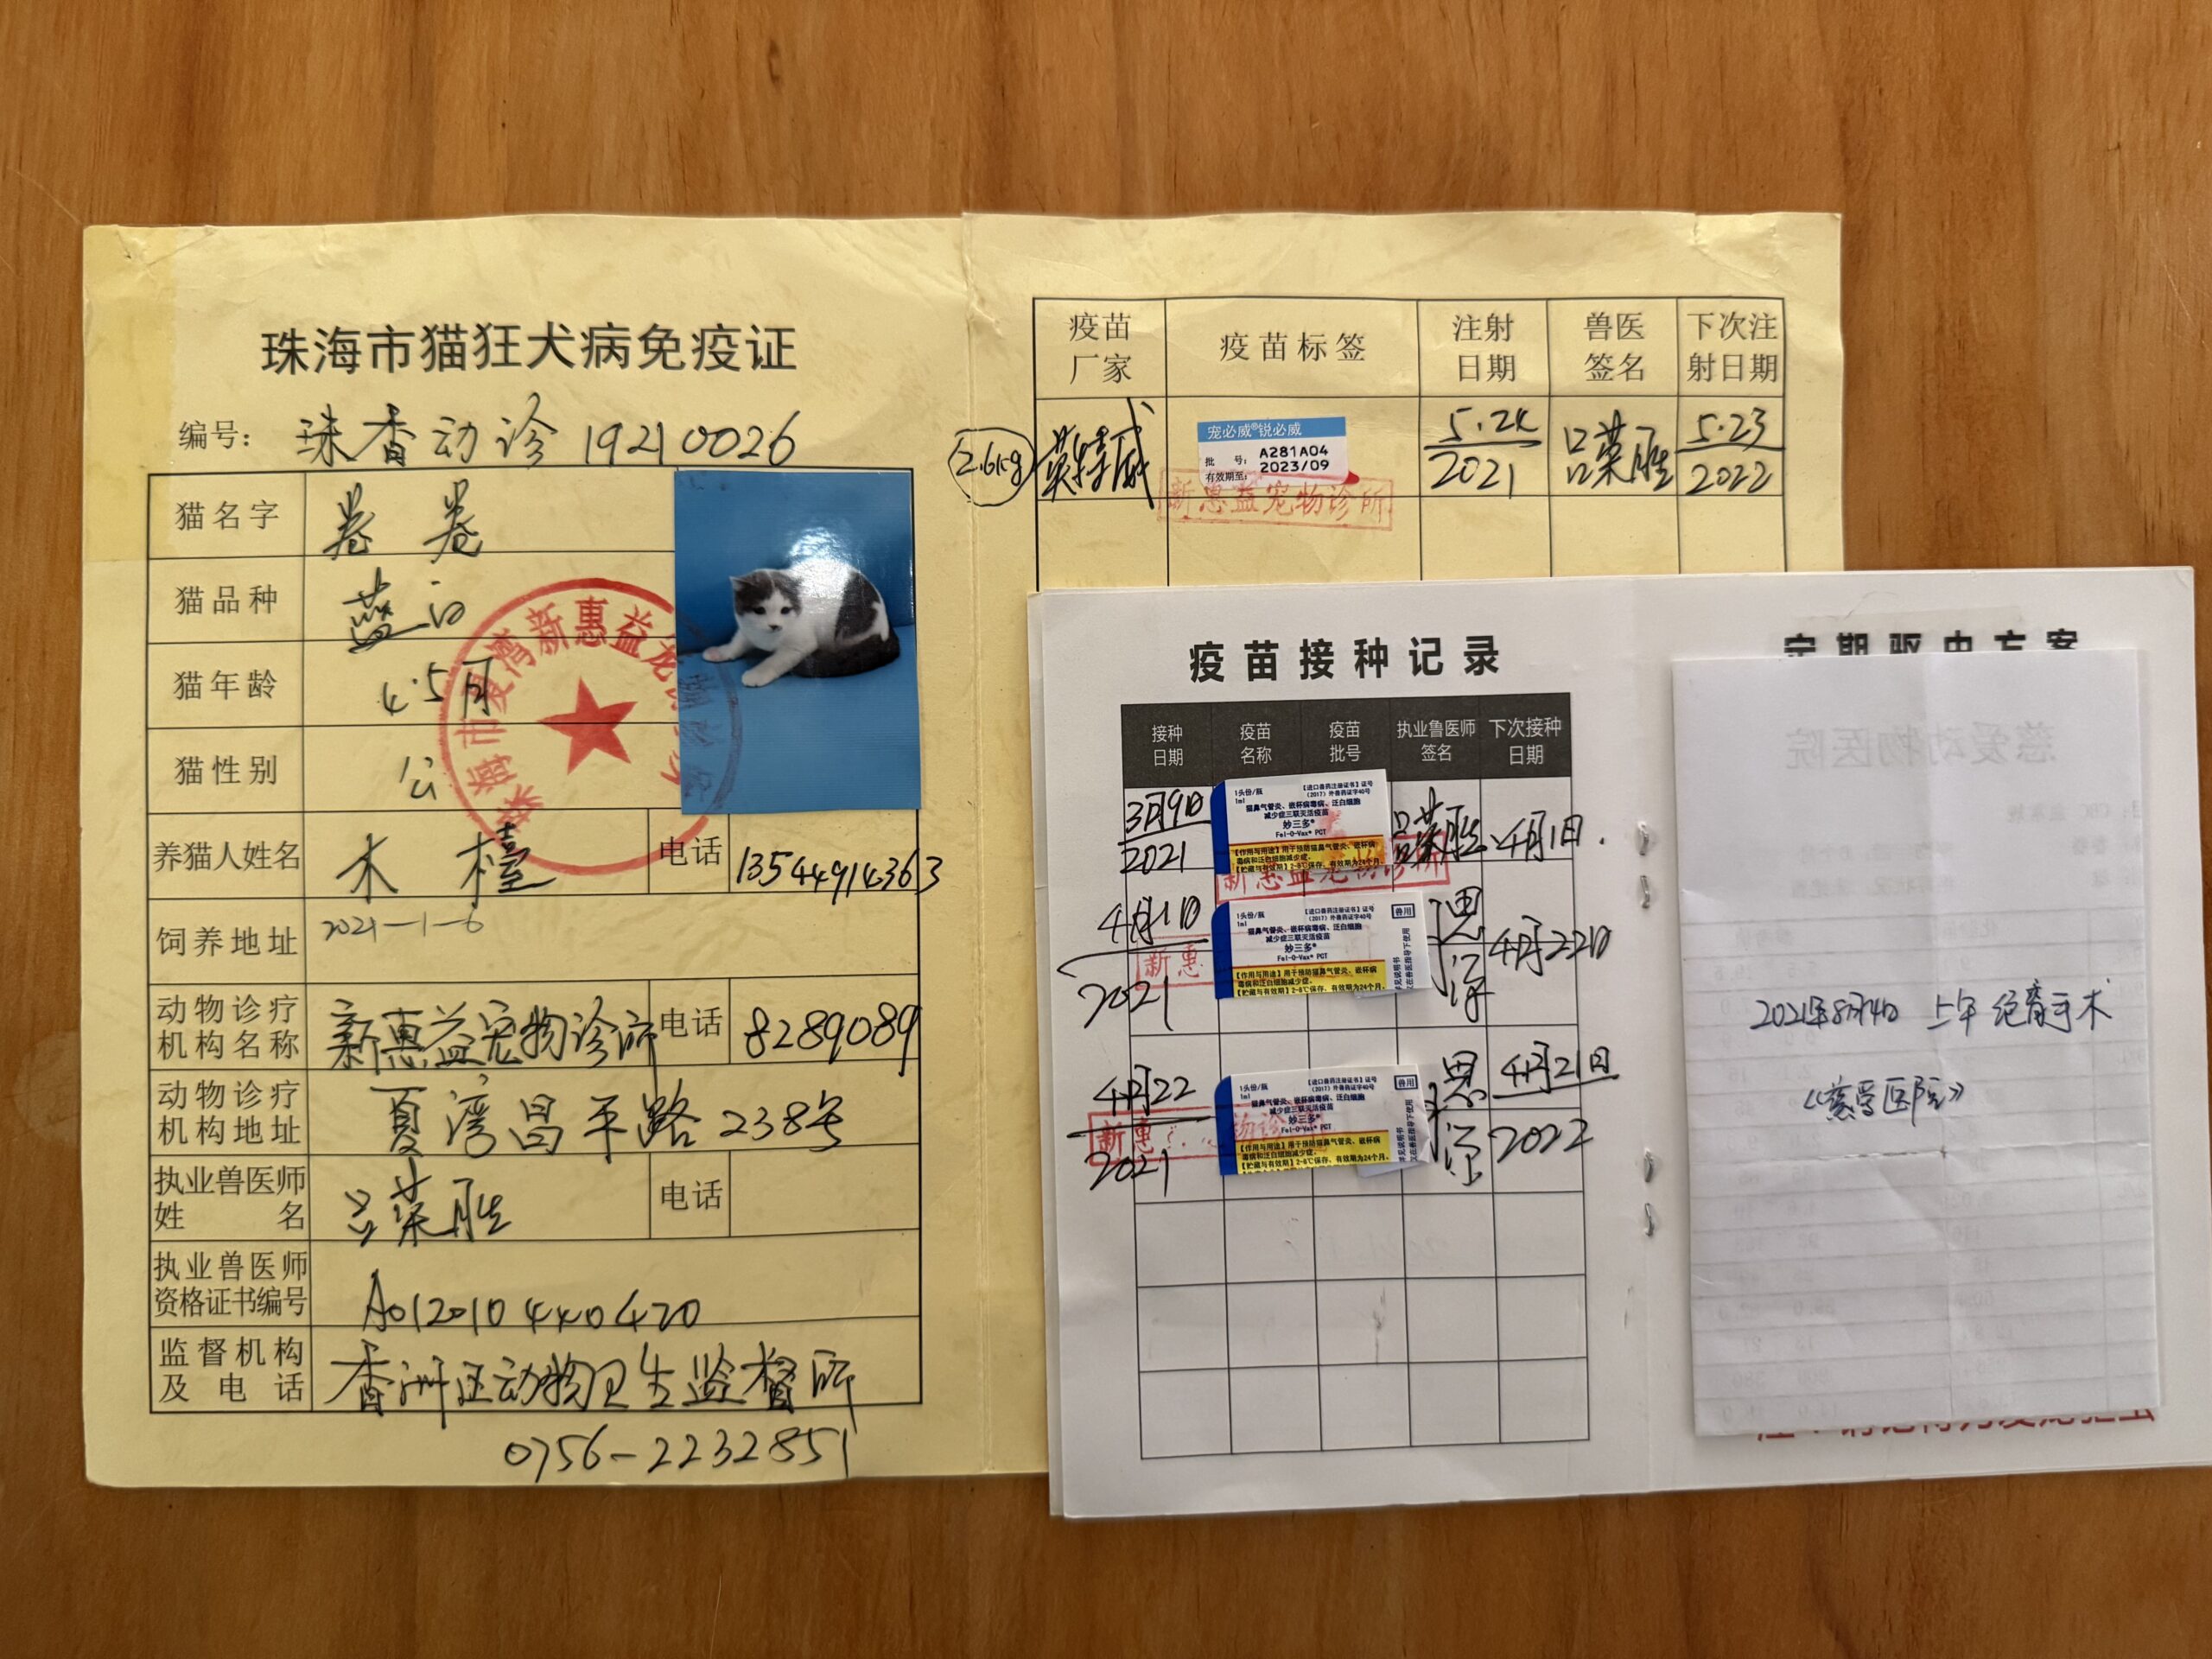 珠海市猫狂犬病免疫证
编号: 珠香动诊19210026
猫名字 卷卷
猫品种 蓝白
猫年龄 4.5月
猫性别 公
养猫人姓名 木檯 电话 13544914363
饲养地址 2021-1-6
动物诊疗机构名称 新惠益宠物诊所 电话 8289089
动物诊疗机构地址 夏湾昌平路238号
执业兽医师姓名 吕荣胜 电话
执业兽医师资格证书编号 A012010440420
监督机构及电话 香洲区动物卫生监督所
0756-2232851
疫苗厂家 疫苗标签 注射日期 兽医签名 下次注射日期
2.6kg 英特威
宠必威®锐必威
批 号: A281A04
有效期至: 2023/09
新惠益宠物诊所
5.24 2021 吕荣胜 5.23 2022
疫苗接种记录
接种日期 疫苗名称 疫苗批号 执业兽医师签名 下次接种日期
3月9日 2021
1头份/瓶 【进口兽药注册证书】证号
1ml (2017)外兽药证字40号
猫鼻气管炎、嵌杯病毒病、泛白细胞
减少症三联灭活疫苗
妙三多®
Fel-O-Vax® PCT
【作用与用途】用于预防猫鼻气管炎、嵌杯病
毒病和泛白细胞减少症。
【贮藏与有效期】2-8℃保存,有效期为24个月。
吕荣胜 4月1日.
新惠益宠物诊所
4月1日 2021
1头份/瓶 【进口兽药注册证书】证号
1ml (2017)外兽药证字40号
兽用
猫鼻气管炎、嵌杯病毒病、泛白细胞
减少症三联灭活疫苗
妙三多®
Fel-O-Vax® PCT
【作用与用途】用于预防猫鼻气管炎、嵌杯病
毒病和泛白细胞减少症。
【贮藏与有效期】2-8℃保存,有效期为24个月。
4月22日
新惠
4月22 2021
1头份/瓶 【进口兽药注册证书】证号
1ml (2017)外兽药证字40号
兽用
猫鼻气管炎、嵌杯病毒病、泛白细胞
减少症三联灭活疫苗
妙三多®
Fel-O-Vax® PCT
【作用与用途】用于预防猫鼻气管炎、嵌杯病
毒病和泛白细胞减少症。
【贮藏与有效期】2-8℃保存,有效期为24个月。
4月21日 2022
新惠
定期驱虫方案
慈爱动物医院
2021年8月14日 上午 绝育手术